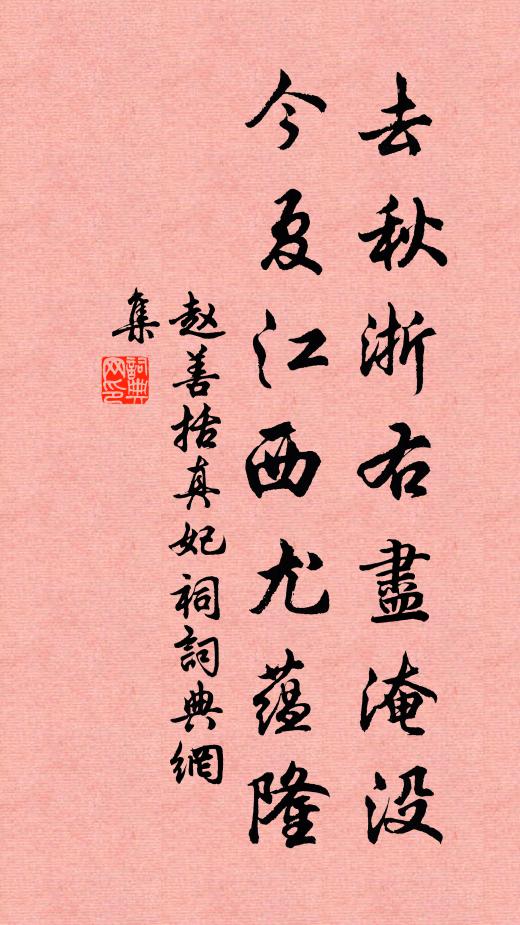 去秋浙右盡淹没
今夏江西尤蘊隆
赵善括真妃祠詞典網
集
詞典
网印